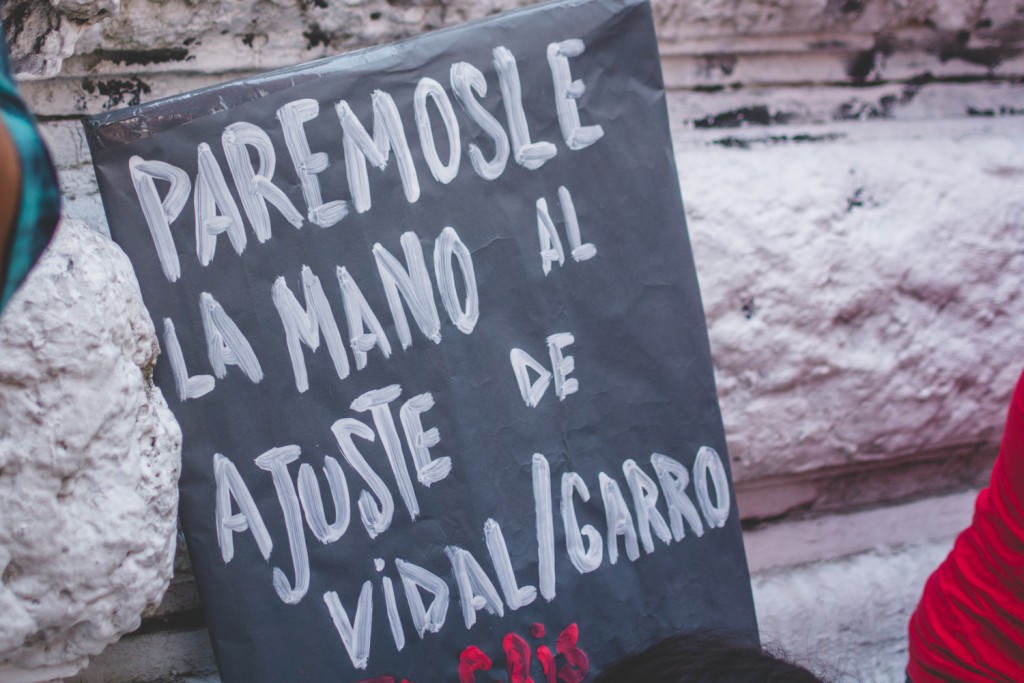 PAREMOSLE
LA MANO AL
AJUSTE DE
ViDAL/GARRO